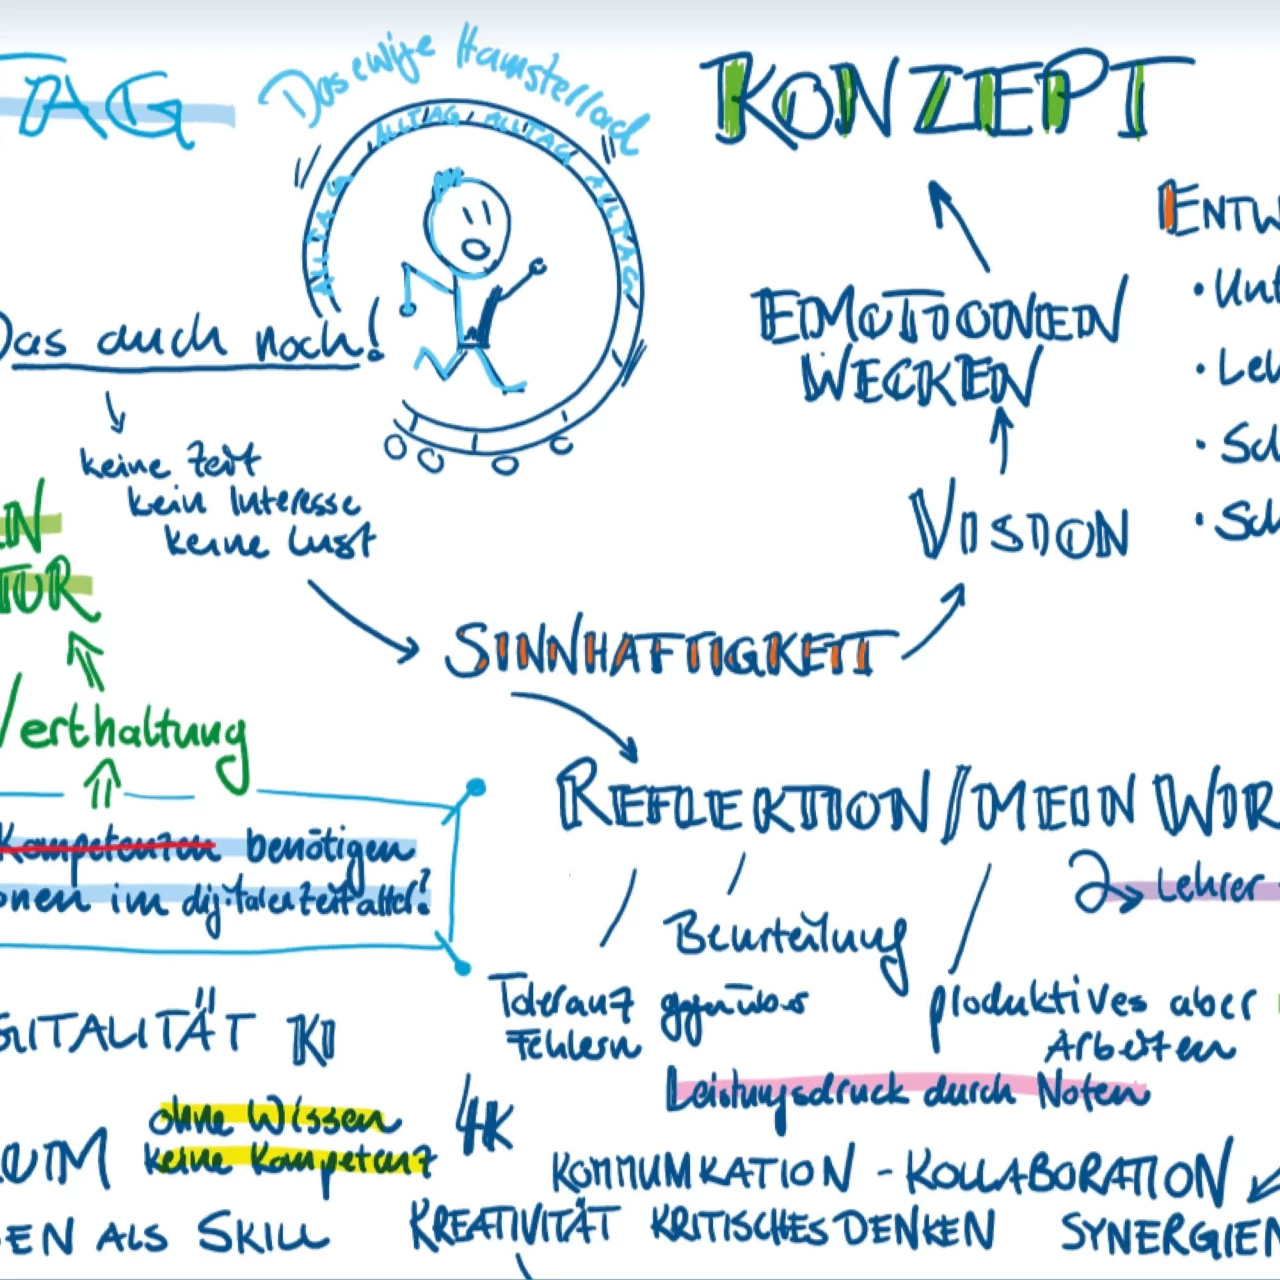 TAG
Das ewige Hamsterrad
ALLTAG ALLTAG ALLTAG ALLTAG
KONZEPT
ENTW
• Unt
• Leh
• Sch
• Sch
EMOTIONEN
WECKEN
VISION
Das auch noch!
keine Zeit
kein Interesse
keine Lust
EN
TUR
SINNHAFTIGKEIT
Werthaltung
REFLEKTION / MEIN WIR
Lehrer
Kompetenzen benötigen
onen im digitalen Zeitalter?
Beurteilung
Toleranz gegenüber
Fehlern
produktives aber
Arbeiten
GITALITÄT KI
Leistungsdruck durch Noten
ohne Wissen
keine Kompetenz
4K
UM
KOMMUNIKATION - KOLLABORATION
EN ALS SKILL
KREATIVITÄT KRITISCHES DENKEN
SYNERGIEN